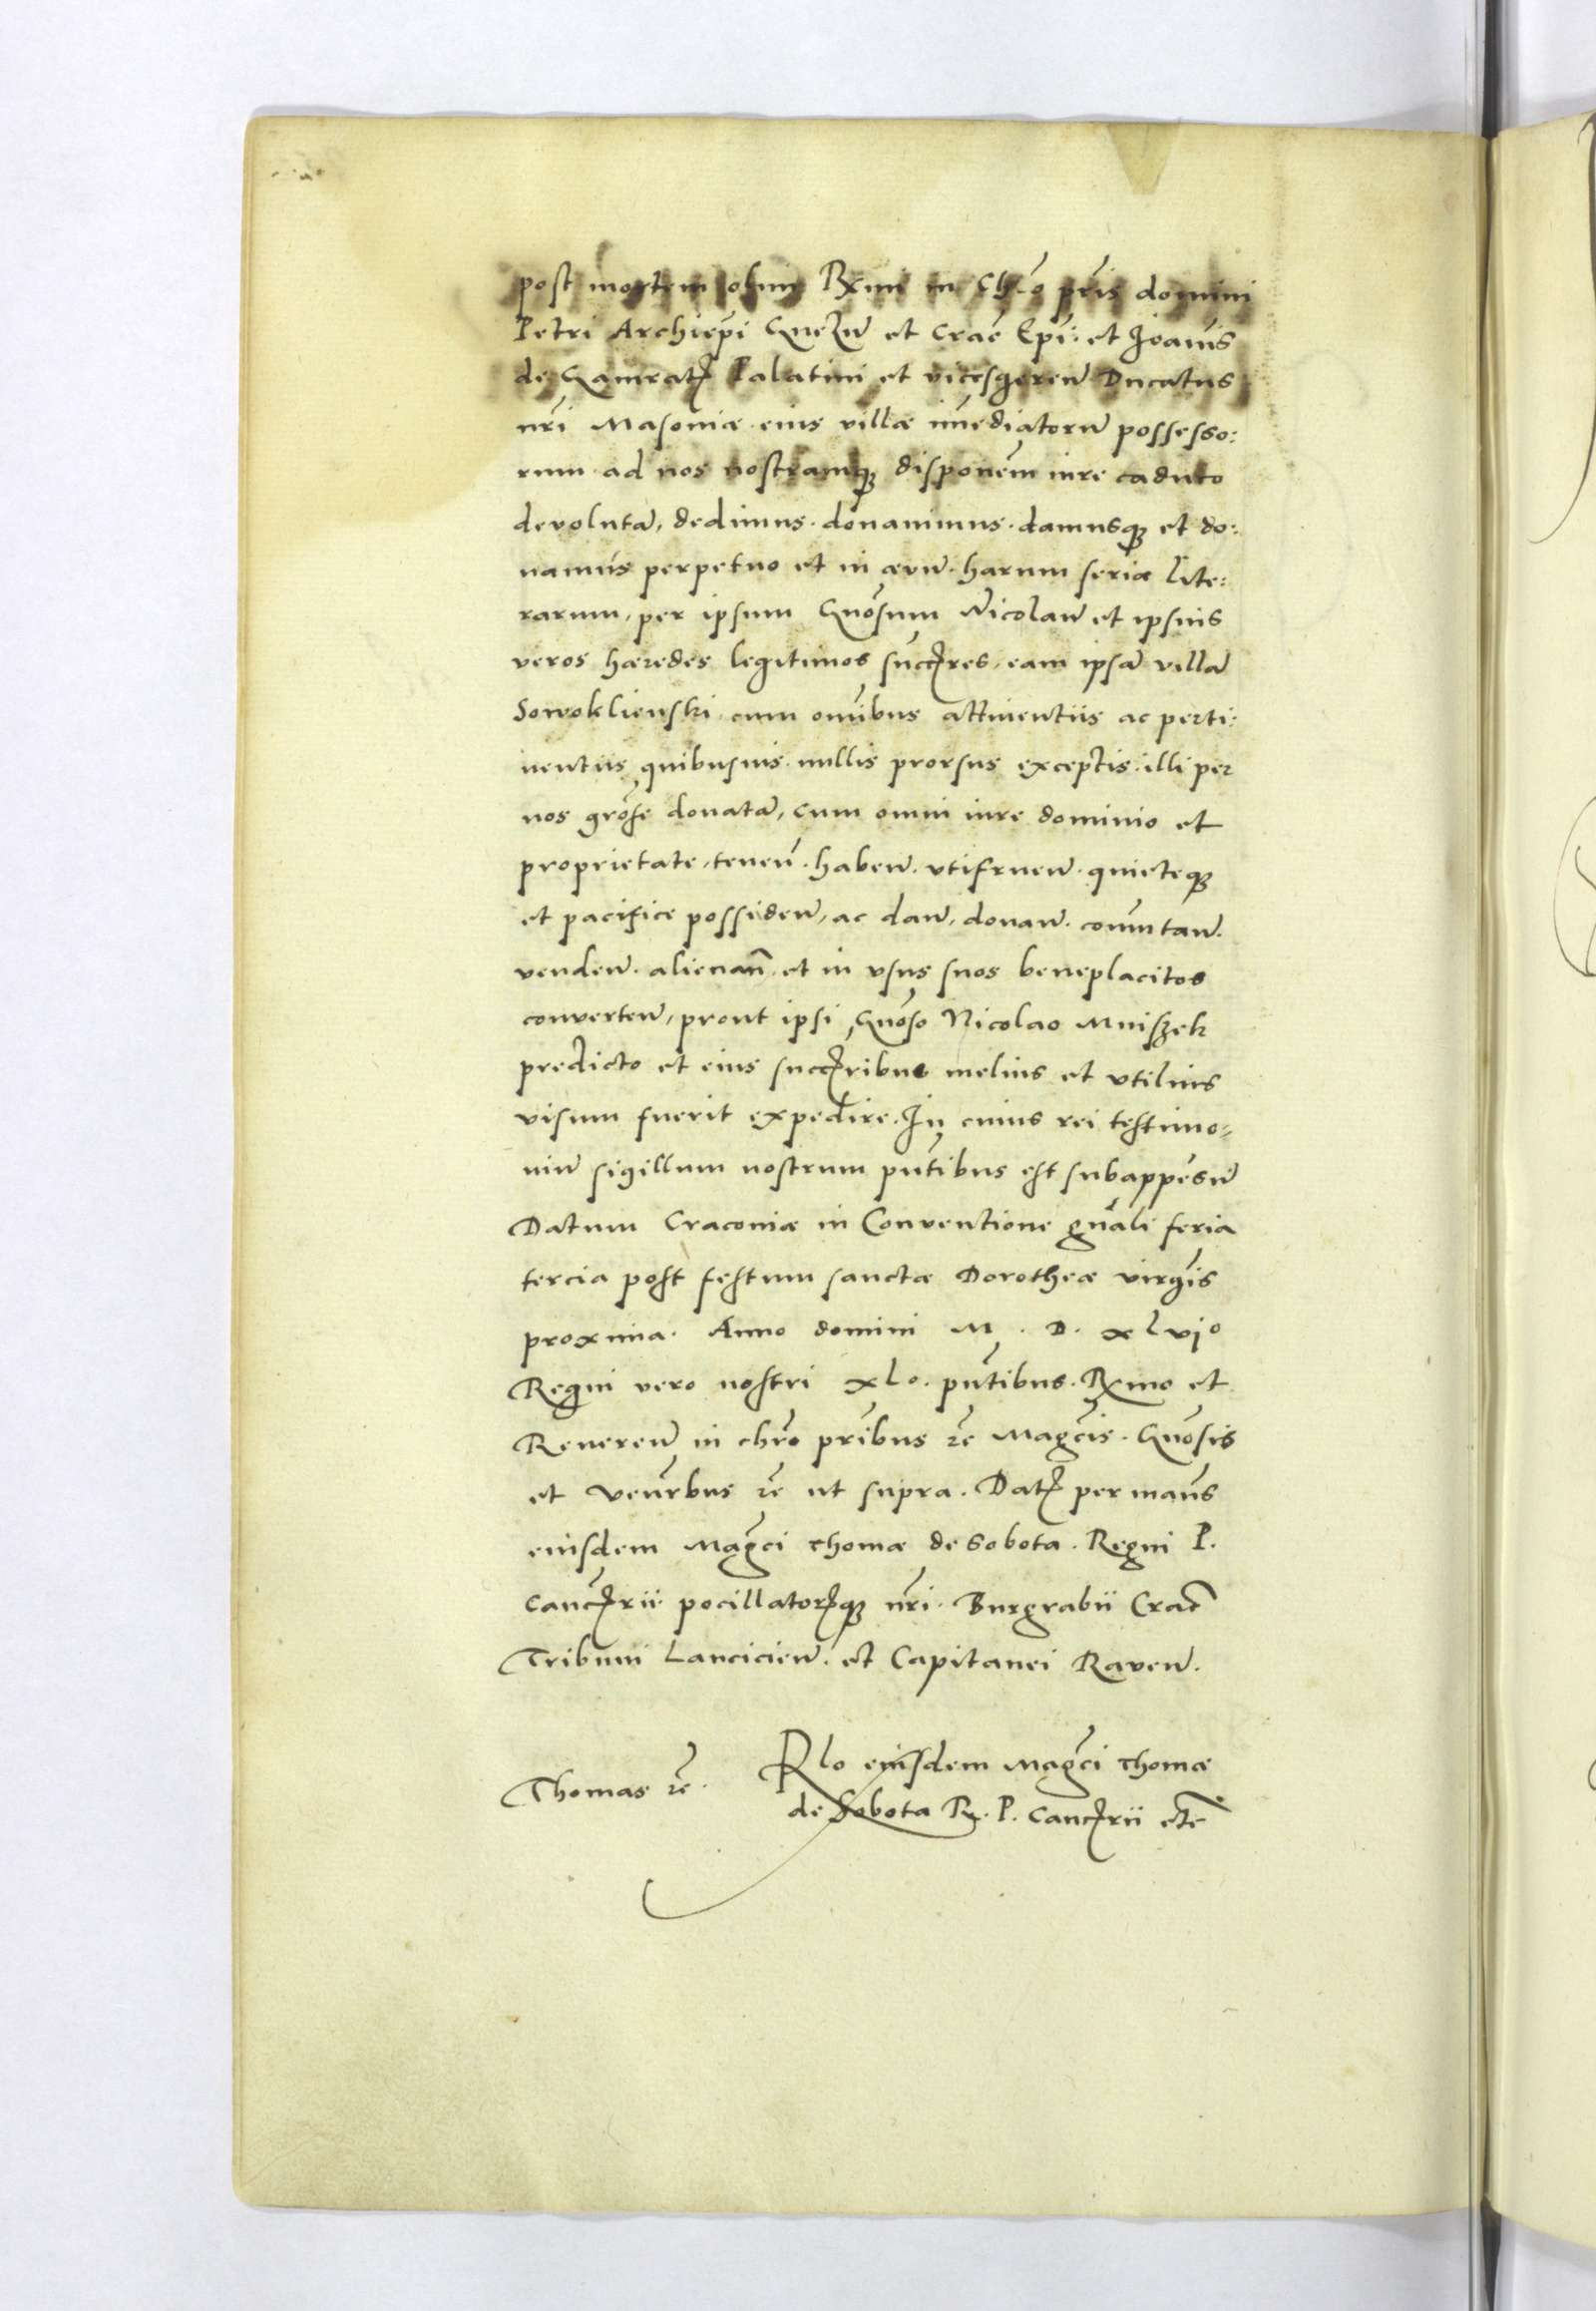 post mortem olim Rxmi in Chro pris domini
Petri Archiepi Gnezn et Crac Epi et Joanis
de Gamratȝ Palatini et vicesgeren Ducatus
nri Masoviæ eius villæ immediatoru possesso:
rum ad nos nostramqȝ disponem iure caduco
devoluta, dedimus donavimus damusqȝ et do:
namus perpetuo et in ævu harum seriæ lite:
rarum, per ipsum Gnosum Nicolau et ipsius
veros hæredes legitimos succȝres, eam ipsa villa
Sowoklienski cum omibus attinentiis ac perti:
nentiis quibusvis nullis prorsus exceptis illi per
nos grose donata, cum omni iure dominio et
proprietate, tenen haben utifruen quieteqȝ
et pacifice possiden, ac dan, donan comutan
venden alienan et in usus suos beneplacitos
converten, prout ipsi Gnoso Nicolao Mniszek
predicto et eius succȝribus melius et utilius
visum fuerit expedire. In cuius rei testimo-
niu sigillum nostrum pntibus est subappensu
Datum Cracoviæ in Conventione gnali feria
tercia post festum sanctæ Dorotheæ virgis
proxima. Anno domini M. D. xlvjo
Regni vero nostri xlo. pntibus. Rxmo et
Reveren in chro pribus rc Magcis. Gnosis
et Venrbus rc ut supra. Datȝ per manus
eiusdem Magci Thomæ de Sobota. Regni P.
Cancȝrii pocillatorȝqȝ nri Burgrabii Crac
Tribuni Lancicien. et Capitanei Raven.
Thomas rc. Rlo eiusdem Magci Thomæ
de Sobota R. P. Cancȝrii etc